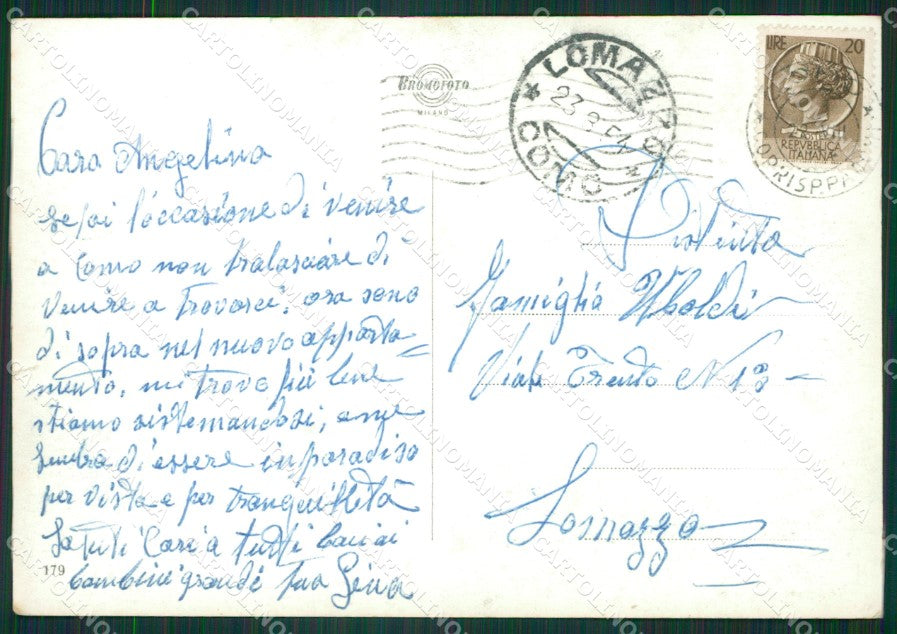 Bromofoto
MILANO
LOMAZZO
COMO
23
LIRE 20
REPVBBLICA
ITALIANA
Cara Angelina
se hai l'occasione di venire
a Como non tralasciare di
venire a trovarci, ora sono
di sopra nel nuovo apparta=
mento, mi trovo più bene
stiamo sistemandosi, a me
sembra di essere in paradiso
per vista e per tranquillità
Saluti Cari a tutti baci ai
bambini grandi tua Gina
179
Distinta
Famiglia Uboldi
Viale Trento N 13 -
Lomazzo
CARTOLINOMANIA